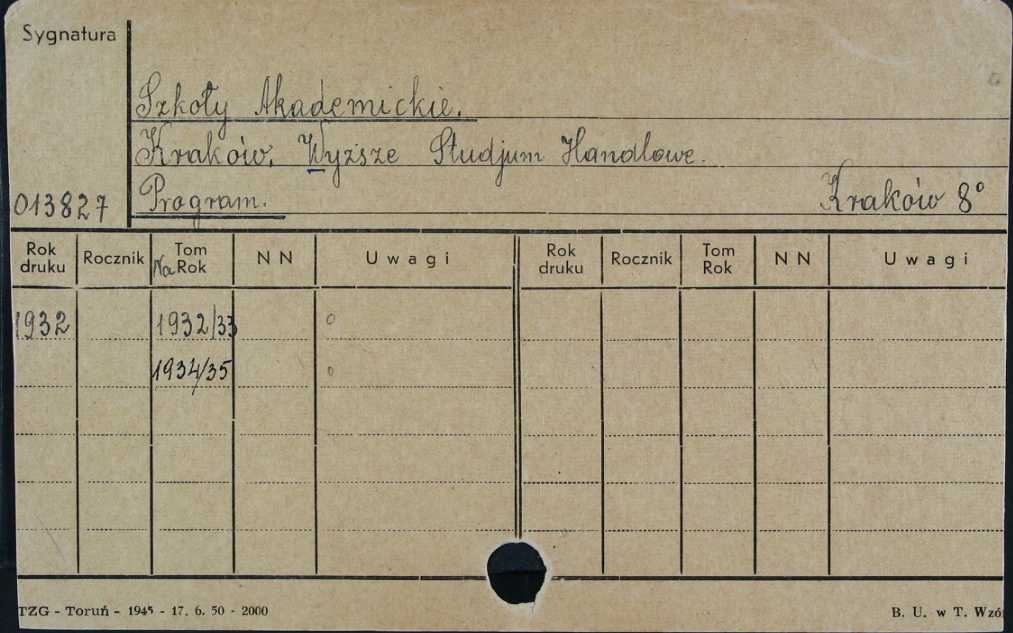 Sygnatura
Szkoły Akademickie.
Kraków, Wyższe Studjum Handlowe.
013827 Program. Kraków 8°
Rok druku Rocznik Tom Na Rok N N Uwagi Rok druku Rocznik Tom Rok N N Uwagi
1932 1932/33 o
1934/35 o
TZG - Toruń - 1945 - 17. 6. 50 - 2000 B. U. w T. Wzó